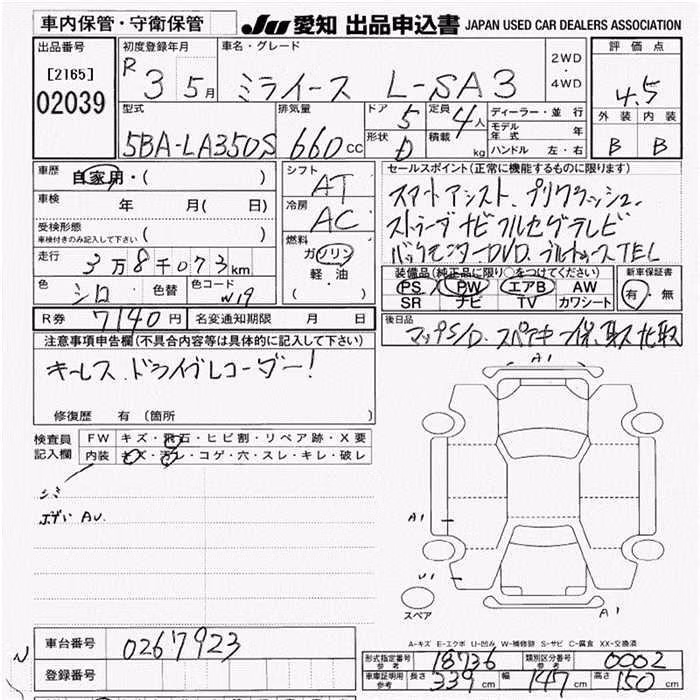 車内保管・守衛保管
JU 愛知 出品申込書 JAPAN USED CAR DEALERS ASSOCIATION
出品番号
[2165]
02039
初度登録年月
R 3 5月
車名・グレード
ミライース L-SA3
2WD
・
4WD
評価点
4.5
外装 内装
B B
型式
5BA-LA350S
排気量
660cc
ドア 5
形状 D
定員 4人
積載 kg
ディーラー・並行
モデル年式 年
ハンドル 左・右
車歴 自家用・( )
車検 年 月( 日)
受検形態
車検付きのみ記入して下さい ( )
走行 3万8千073km
色 シロ 色替 色コード W19
シフト AT
冷房 AC
燃料
ガソリン
軽・油
( )
セールスポイント(正常に機能するものに限ります)
スマートアシスト、プリクラッシュ、
ストラーダナビフルセグテレビ
バックモニター・DVD、ブルートゥースTEL
装備品(純正品に限り○をつけてください)
PS PW エアB AW
SR ナビ TV カワシート
新車保証書
有・無
R券 7140円 名変通知期限 月 日
後日品
マップS/D、スペアキー、保、取
注意事項申告欄(不具合内容等は具体的に記入して下さい)
キーレス、ドライブレコーダー!
修復歴 有(箇所 )
検査員記入欄
FW キズ・飛石・ヒビ割・リペア跡・X要
内装 キズ・汚レ・コゲ・穴・スレ・キレ・破レ
シミ
AU
A1
A1
U1
A1
スペア
A-キズ E-エクボ U-凹み W-補修跡 S-サビ C-腐食 XX-交換済
車台番号 0267923
登録番号
N
形式指定番号参考 18736
類別区分番号参考 0002
車庫証明用参考 長さ 339cm 幅 147cm 高さ 150cm